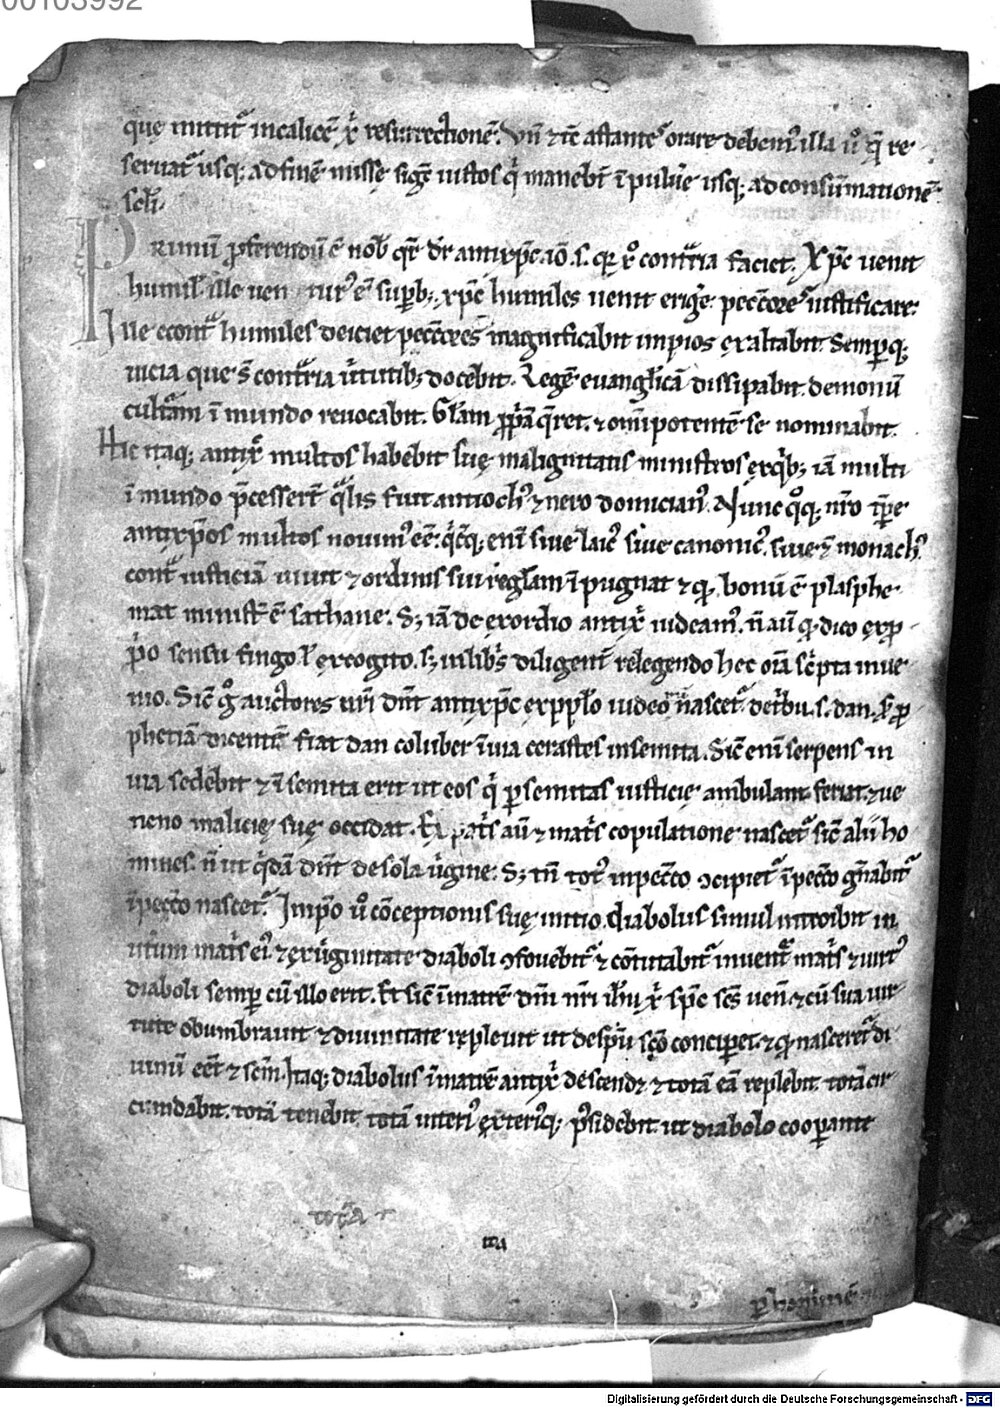 00103992
quę mittit̃ in calicẽ x̃ resurrectionẽ. Vñ ⁊ tc̃ astante᷒ orare debem᷒ illa u̾ q̃ re
seruat̃ usq; ad finẽ missę sigt̃ iustos q̃ manebt̃ ĩ puluẽ usq; ad consũmationẽ
scl̃i.
Primũ p̱ferendũ ẽ nob̃ qr̃ dr̃ antixp̃c. iõ .s. qr xp̃o cont̃ria faciet. Xp̃c uenit
humil̃ ille uen tur᷒ ẽ sup̱b; xp̃c humiles uenit erig̾e peccc̃ores iustificare.
Ille econt̃ humiles deiciet peccc̃ores magnificabit impios exaltabit. Semp̱q;
uicia que s̃ cont̃ria ũtutib; docebit. Legẽ euangl̃icã dissipabit. demonũ
cult̃am ĩ mundo reuocabit. Gl̃am p̱p̃ã q̃ret. ⁊ om̃ipotentẽ se nominabit.
Hic itaq; antix̃ multos habebit suę malignitatis ministros ęx q̃b; iã multi
ĩ mundo p̃cessert̃ q̃lis fuit antioch᷒ ⁊ nero domician᷒. Nunc q̊q; nr̃o tp̃re
antixp̃os multos nouim᷒ eẽ. q̃cq; enĩ siue laic᷒ siue canonic᷒. siue ⁊ monach᷒
cont̃ iusticiã uiuit ⁊ ordinis sui regl̃am ĩpugnat ⁊ q̱ bonũ ẽ plasphe
mat minist̃ ẽ sathane. S; iã de ęxordio antix̃ uideam᷒. ñ aũ q̱ dico ęx p̱
p̃o sensu fingo l̃ ęxcogito. s; in lib̃s diligent̃ relegendo hec om̃a sc̃pta inue
nio. Sic̃ g̊ auctores ur̃i dñt antixp̃c ęx pp̱lo iudeo᷒ nascet̃. de t̃bu .s. dan. x̃ p̱
phetiã dicentẽ fiat dan coluber ĩ uia cerastes in semita. Sic̃ enĩ serpens in
uia sedebit ⁊ ĩ semita erit ut eos q̃ p̱ semitas iusticię ambulant feriat. ⁊ ue
neno malicię suę occidat. Ex pat̃s aũ ⁊ mat̃s copulatione nascet̃ sic̃ alii ho
mines. ñ ut q̃dã dñt de sola ũgine. S; tñ tot᷒ in pecc̃o ɔcipiet̃ ĩ pecc̃o gñabit̃
ĩ pecc̃o nascet̃. Imp̱o u̾ cõceptionis suę initio. diabolus simul introibit in
ut̃um mat̃s ei᷒ ⁊ ęx ũginitate diaboli ɔfouebit̃ ⁊ cõntutabit̃ in uent̃ mat̃s ⁊ uirt᷒
diaboli semp̱ cũ illo erit. Et sic̃ ĩ matrẽ dñi nr̃i ih̃u x̃ sp̃c scs̃ ueñ ⁊ cũ sua uir
tute obumbrauit ⁊ diuinitate repleuit ut de sp̃u sc̃o concip̱et. ⁊ q̱ nasceret̃ di
uinũ eẽt ⁊ scm̃. Itaq; diabolus ĩ matrẽ antix̃ descendet ⁊ totã eã replebit. totã cir
cundabit. totã tenebit. totã interi᷒ ęxteri᷒q; p̃sidebit. ut diabolo coop̱ante
Digitalisierung gefördert durch die Deutsche Forschungsgemeinschaft - DFG